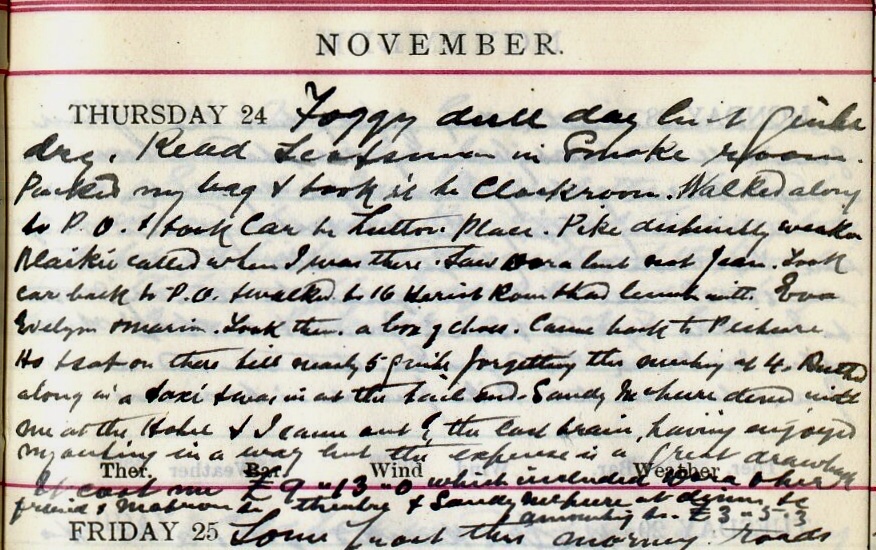 NOVEMBER.
THURSDAY 24 Foggy dull day but quite
dry. Read Scotsman in Smoke room.
Packed my bag & took it to Cloakroom. Walked along
to P.O. & took Car to Hutton Place. Pike distinctly weaker
Blaikie called when I was there. Saw Dora but not Jean. Took
car back to P.O. & walked to 16 Heriot Row & had lunch with Eva
Evelyn & Marion. Took them a box of chocs. Came back to Picture
Ho & sat on there till nearly 5 quite forgetting the meeting at 4. Rushed
along in a taxi & was in at the tail end. Sandy McPhure dined with
me at the Hotel & I came out by the last train, having enjoyed
my outing in a way but the expense is a great drawback
Ther. Bar. Wind Weather
It cost me £9"13"0 which included Dora & her
friend & Matron to theatre & Sandy McPhure at dinner to
amounting to £3"5.3
FRIDAY 25 Some frost this morning. Roads